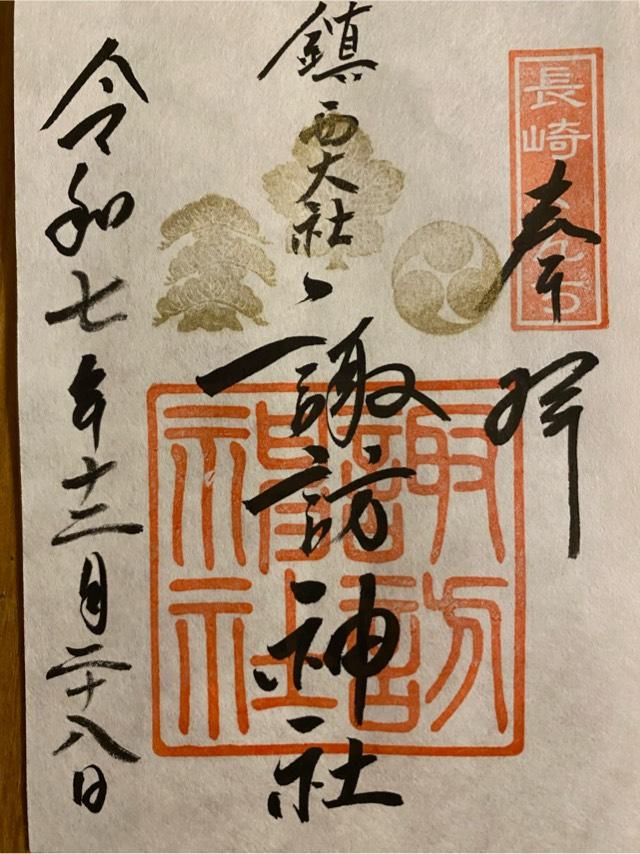 長崎くんち
奉拝
鎮西大社
諏訪神社
諏訪神社
令和七年十二月二十八日